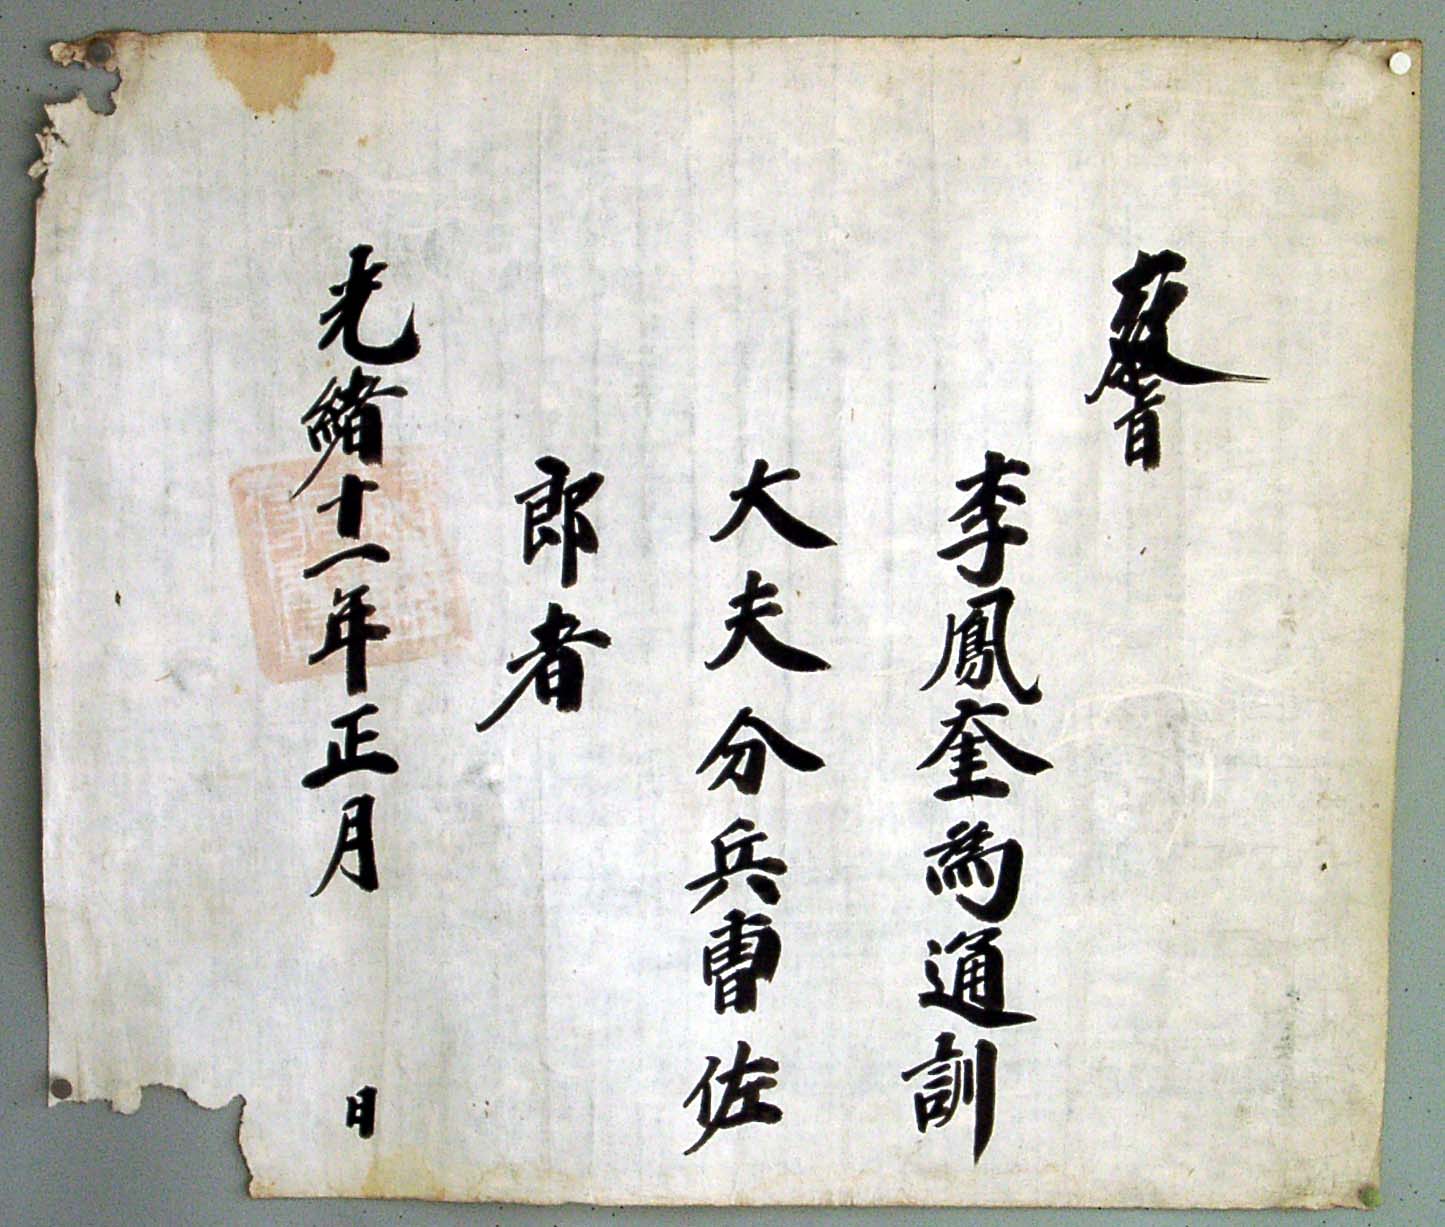 敎旨
李鳳奎為通訓
大夫分兵曺佐
郎者
光緖十一年正月 日